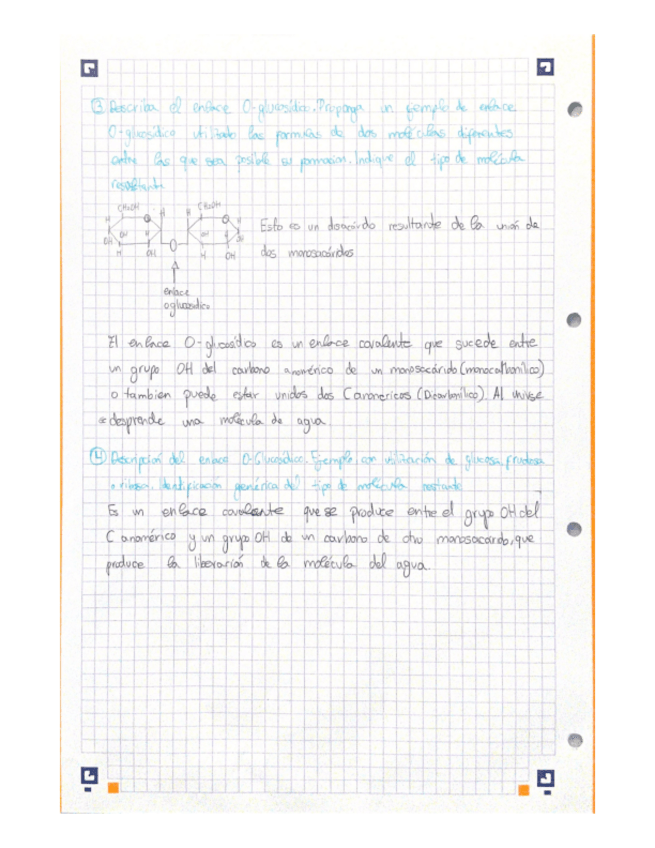 ③ Describa el enlace O-glucosídico. Proponga un ejemplo de enlace
O-glucosídico utilizando las formulas de dos moléculas diferentes
entre las que sea posible su formacion. Indique el tipo de molécula
resultante
CH₂OH CH₂OH
H O H H O H
OH OH H OH H OH
H OH O H OH
Esto es un disacárido resultante de la unión de
dos monosacáridos
enlace
oglucosidico
El enlace O-glucosídico es un enlace covalente que sucede entre
un grupo OH del carbono anomérico de un monosacárido (monocarbonílico)
o tambien puede estar unidos dos C anomericos (Dicarbonílico). Al unirse
se desprende una molécula de agua
④ Descripción del enlace O-Glucosídico. Ejemplo con utilización de glucosa, fructosa
o ribosa. Identificación genérica del tipo de molécula
Es un enlace covalente que se produce entre el grupo OH del
C anomérico y un grupo OH de un carbono de otro monosacárido, que
produce la liberación de la molécula del agua.